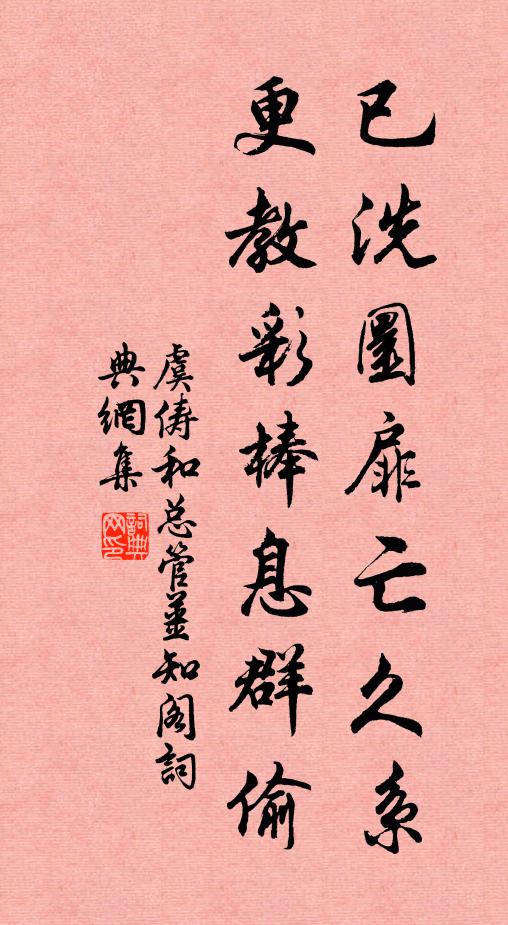 已洗圜扉亡久系
更教彩棒息群偷
虞俦和总管姜知阁詞
典網集
詞典
网印